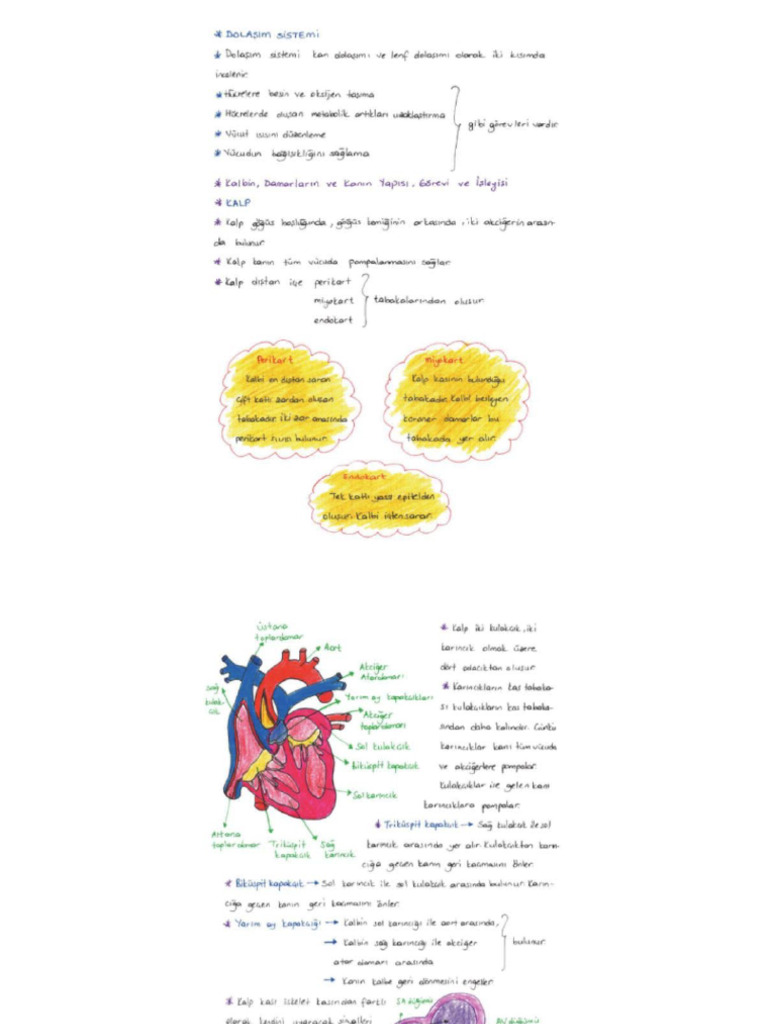 * DOLAŞIM SİSTEMİ
* Dolaşım sistemi kan dolaşımı ve lenf dolaşımı olarak iki kısımda
incelenir.
* Hücrelere besin ve oksijen taşıma
* Hücrelerde oluşan metabolik artıkları uzaklaştırma
* Vücut ısısını düzenleme
* Vücudun bağışıklığını sağlama
gibi görevleri vardır.
* Kalbin, Damarların ve Kanın Yapısı, Görevi ve İşleyişi
* KALP
* Kalp göğüs boşluğunda, göğüs kemiğinin arkasında, iki akciğerin arasın-
da bulunur.
* Kalp kanın tüm vücuda pompalanmasını sağlar.
* Kalp dıştan içe perikart
miyokart
endokart
tabakalarından oluşur.
Perikart
Kalbi en dıştan saran
çift katlı zardan oluşan
tabakadır. İki zar arasında
perikart sıvısı bulunur.
Miyokart
Kalp kasının bulunduğu
tabakadır. Kalbi besleyen
koroner damarlar bu
tabakada yer alır.
Endokart
Tek katlı yassı epitelden
oluşur. Kalbi içten sarar.
Üstana
toplardamar
Aort
Akciğer
Atardamarı
Yarım ay kapakçıkları
Akciğer
toplardamarı
Sol kulakçık
Biküspit kapakçık
Sol karıncık
Sağ
kulak-
çık
Altana
toplardamar
Triküspit
kapakçık
Sağ
karıncık
* Kalp iki kulakçık, iki
karıncık olmak üzere
dört odacıktan oluşur.
* Karıncıkların kas tabaka-
sı kulakçıkların kas tabaka-
sından daha kalındır. Çünkü
karıncıklar kanı tüm vücuda
ve akciğerlere pompalar.
Kulakçıklar ise gelen kanı
karıncıklara pompalar.
* Triküspit kapakçık → Sağ kulakcık ile sol
karıncık arasında yer alır. Kulakcıktan karın-
cığa geçen kanın geri kaçmasını önler.
* Biküspit kapakçık → Sol karıncık ile sol kulakcık arasında bulunur. Karın-
cığa geçen kanın geri kaçmasını önler.
* Yarım ay kapakçığı → Kalbin sol karıncığı ile aort arasında,
→ Kalbin sağ karıncığı ile akciğer
atar damarı arasında
bulunur.
→ Kanın kalbe geri dönmesini engeller.
* Kalp kası iskelet kasından farklı
olarak kendini uyaracak sinyalleri
SA düğümü
AV düğümü